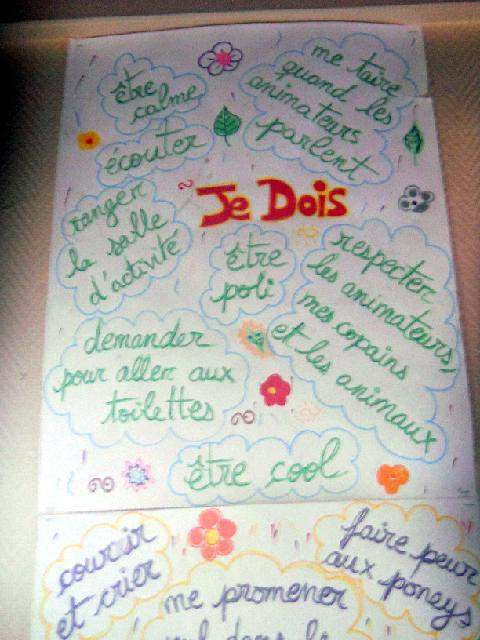 être
calme
me taire
quand les
animateurs
parlent
écouter
Je Dois
ranger
la salle
d'activité
être
poli
respecter
les animateurs,
mes copains
et les animaux
demander
pour aller aux
toilettes
être cool
courir
et crier
faire peur
aux poneys
me promener
seul dans